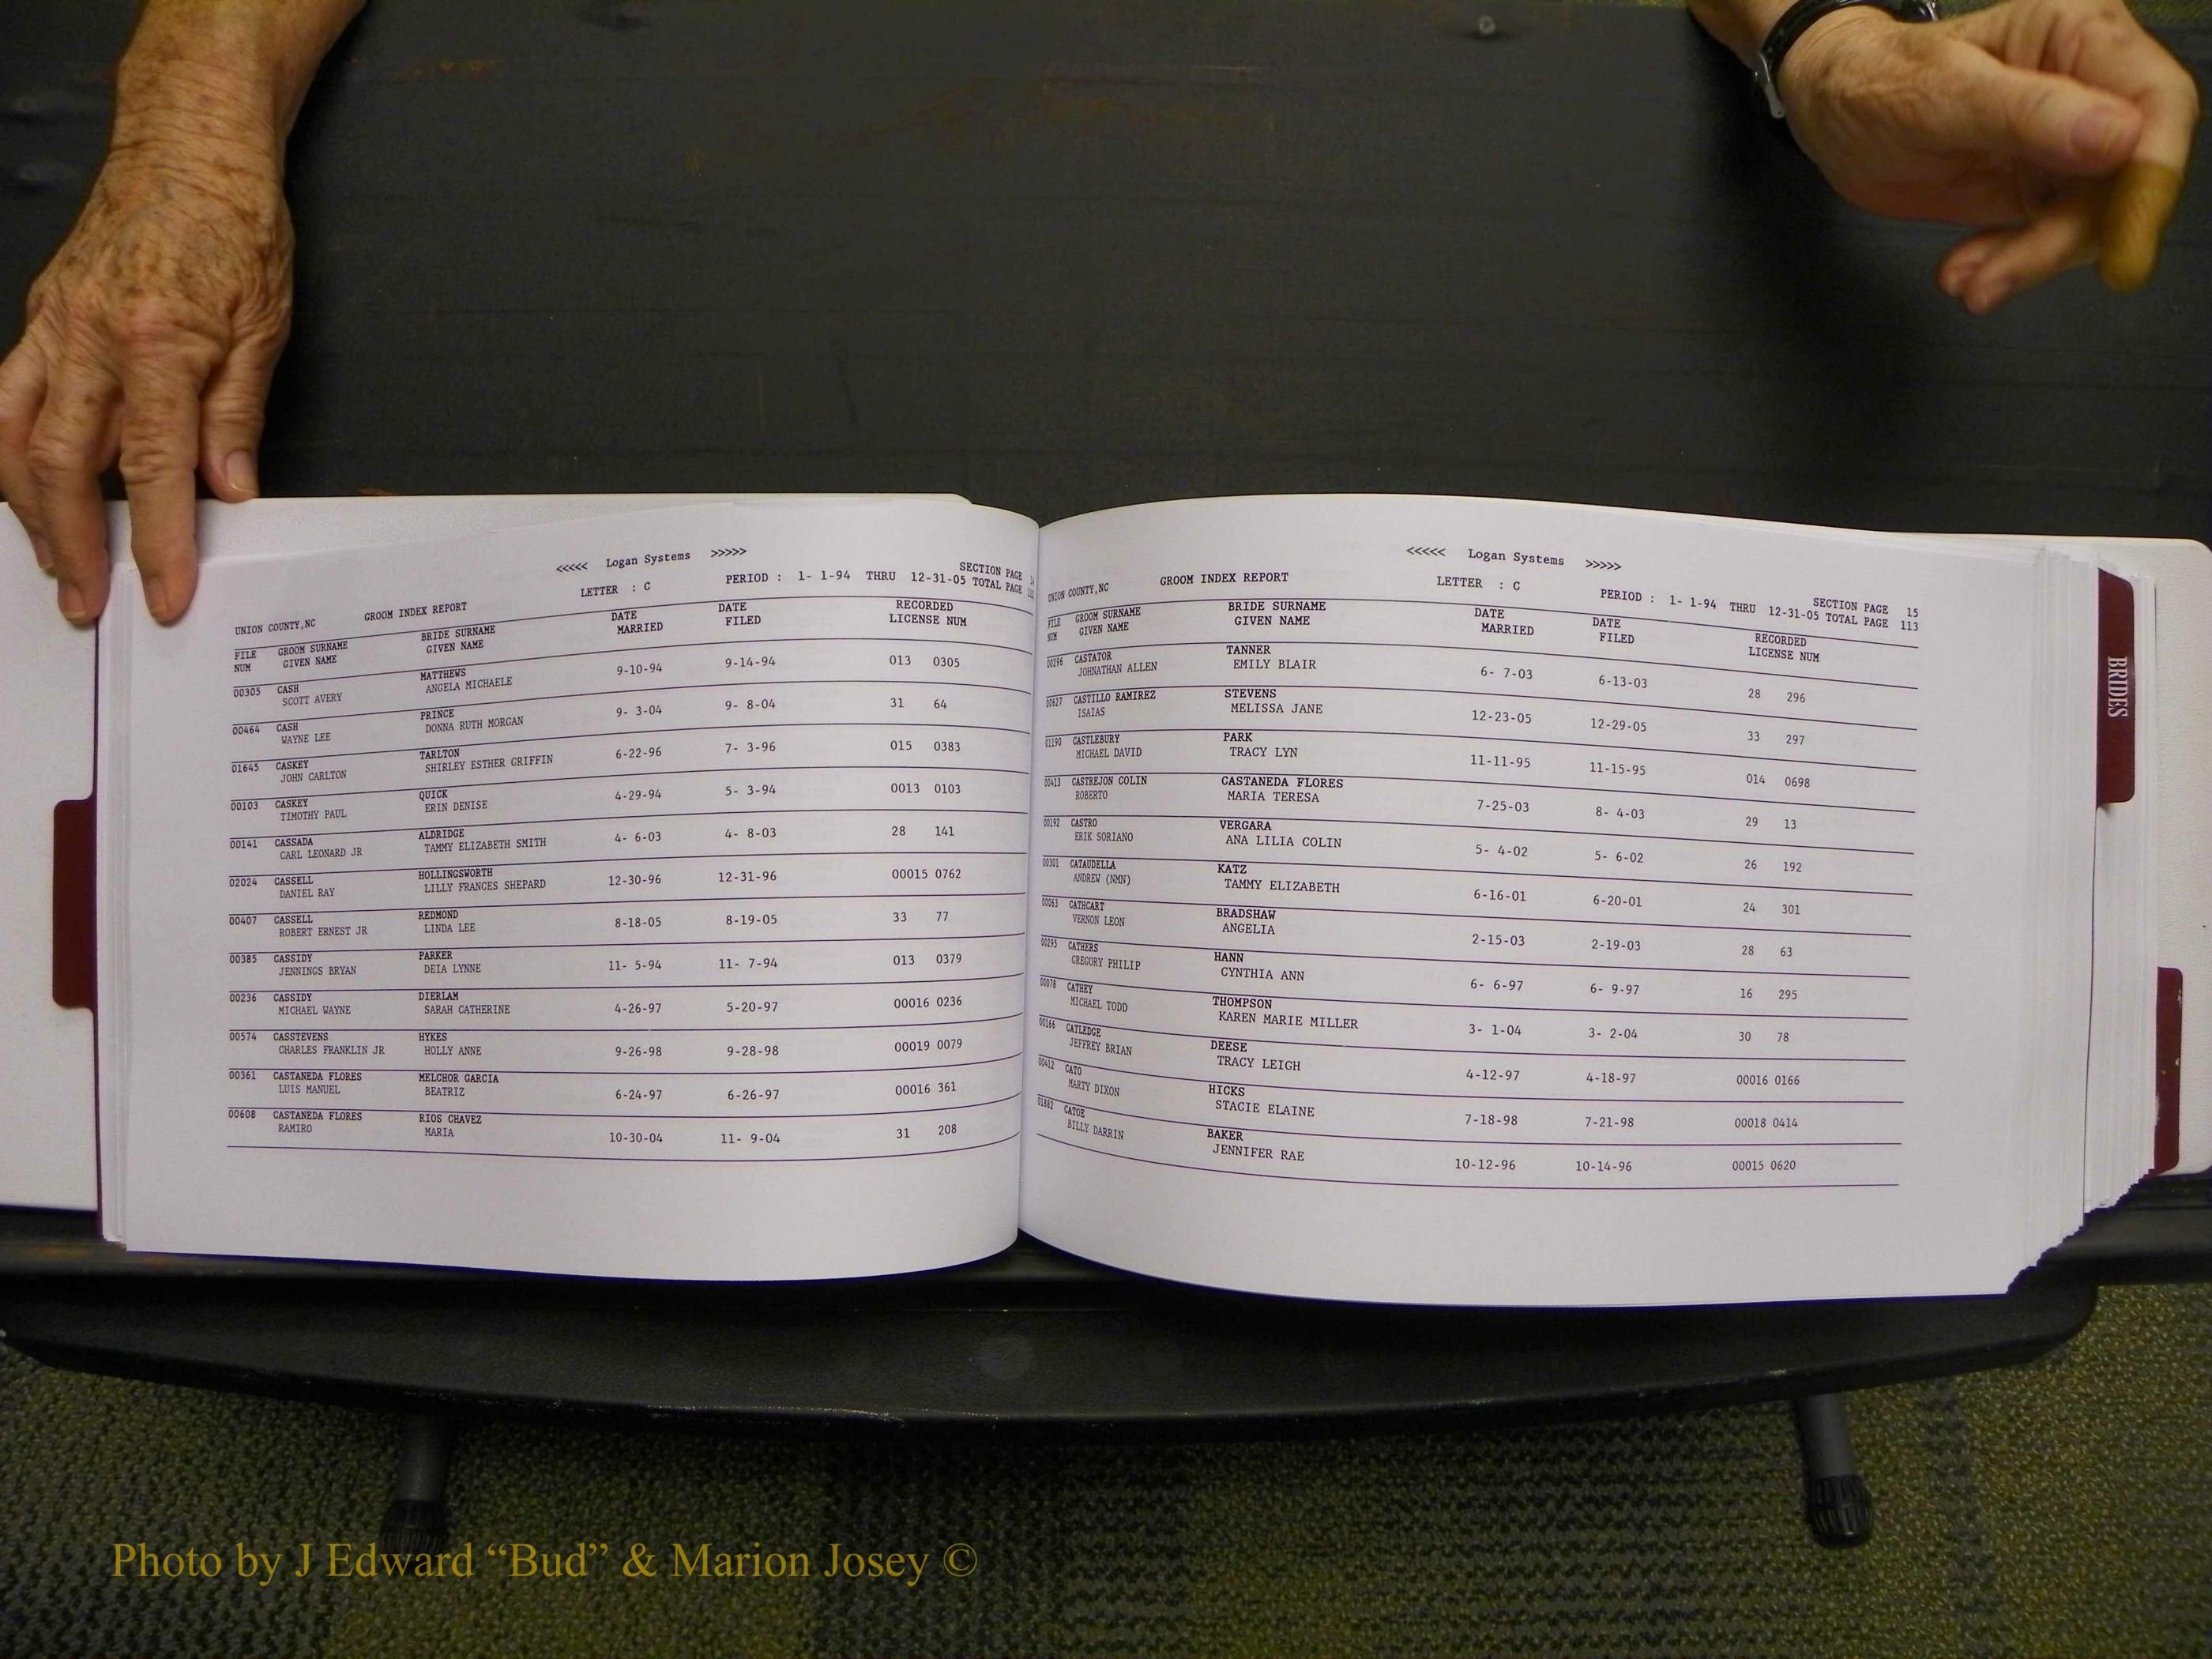 <<<<< Logan Systems >>>>>
UNION COUNTY,NC GROOM INDEX REPORT LETTER : C PERIOD : 1- 1-94 THRU 12-31-05 SECTION PAGE
TOTAL PAGE
FILE NUM GROOM SURNAME GIVEN NAME BRIDE SURNAME GIVEN NAME DATE MARRIED DATE FILED RECORDED LICENSE NUM
00305 CASH MATTHEWS 9-10-94 9-14-94 013 0305
SCOTT AVERY ANGELA MICHAELE
00464 CASH PRINCE 9- 3-04 9- 8-04 31 64
WAYNE LEE DONNA RUTH MORGAN
01645 CASKEY TARLTON 6-22-96 7- 3-96 015 0383
JOHN CARLTON SHIRLEY ESTHER GRIFFIN
00103 CASKEY QUICK 4-29-94 5- 3-94 0013 0103
TIMOTHY PAUL ERIN DENISE
00141 CASSADA ALDRIDGE 4- 6-03 4- 8-03 28 141
CARL LEONARD JR TAMMY ELIZABETH SMITH
02024 CASSELL HOLLINGSWORTH 12-30-96 12-31-96 00015 0762
DANIEL RAY LILLY FRANCES SHEPARD
00407 CASSELL REDMOND 8-18-05 8-19-05 33 77
ROBERT ERNEST JR LINDA LEE
00385 CASSIDY PARKER 11- 5-94 11- 7-94 013 0379
JENNINGS BRYAN DEIA LYNNE
00236 CASSIDY DIERLAM 4-26-97 5-20-97 00016 0236
MICHAEL WAYNE SARAH CATHERINE
00574 CASSTEVENS HYKES 9-26-98 9-28-98 00019 0079
CHARLES FRANKLIN JR HOLLY ANNE
00361 CASTANEDA FLORES MELCHOR GARCIA 6-24-97 6-26-97 00016 361
LUIS MANUEL BEATRIZ
00608 CASTANEDA FLORES RIOS CHAVEZ 10-30-04 11- 9-04 31 208
RAMIRO MARIA
<<<<< Logan Systems >>>>>
UNION COUNTY,NC GROOM INDEX REPORT LETTER : C PERIOD : 1- 1-94 THRU 12-31-05 SECTION PAGE 15
TOTAL PAGE 113
FILE NUM GROOM SURNAME GIVEN NAME BRIDE SURNAME GIVEN NAME DATE MARRIED DATE FILED RECORDED LICENSE NUM
00296 CASTATOR TANNER 6- 7-03 6-13-03 28 296
JOHNATHAN ALLEN EMILY BLAIR
00627 CASTILLO RAMIREZ STEVENS 12-23-05 12-29-05 33 297
ISAIAS MELISSA JANE
01190 CASTLEBURY PARK 11-11-95 11-15-95 014 0698
MICHAEL DAVID TRACY LYN
00413 CASTREJON COLIN CASTANEDA FLORES 7-25-03 8- 4-03 29 13
ROBERTO MARIA TERESA
00192 CASTRO VERGARA 5- 4-02 5- 6-02 26 192
ERIK SORIANO ANA LILIA COLIN
00301 CATAUDELLA KATZ 6-16-01 6-20-01 24 301
ANDREW (NMN) TAMMY ELIZABETH
00063 CATHCART BRADSHAW 2-15-03 2-19-03 28 63
VERNON LEON ANGELIA
00295 CATHERS HANN 6- 6-97 6- 9-97 16 295
GREGORY PHILIP CYNTHIA ANN
00078 CATHEY THOMPSON 3- 1-04 3- 2-04 30 78
MICHAEL TODD KAREN MARIE MILLER
00166 CATLEDGE DEESE 4-12-97 4-18-97 00016 0166
JEFFREY BRIAN TRACY LEIGH
00412 CATO HICKS 7-18-98 7-21-98 00018 0414
MARTY DIXON STACIE ELAINE
01882 CATOE BAKER 10-12-96 10-14-96 00015 0620
BILLY DARRIN JENNIFER RAE
BRIDES
Photo by J Edward “Bud” & Marion Josey ©